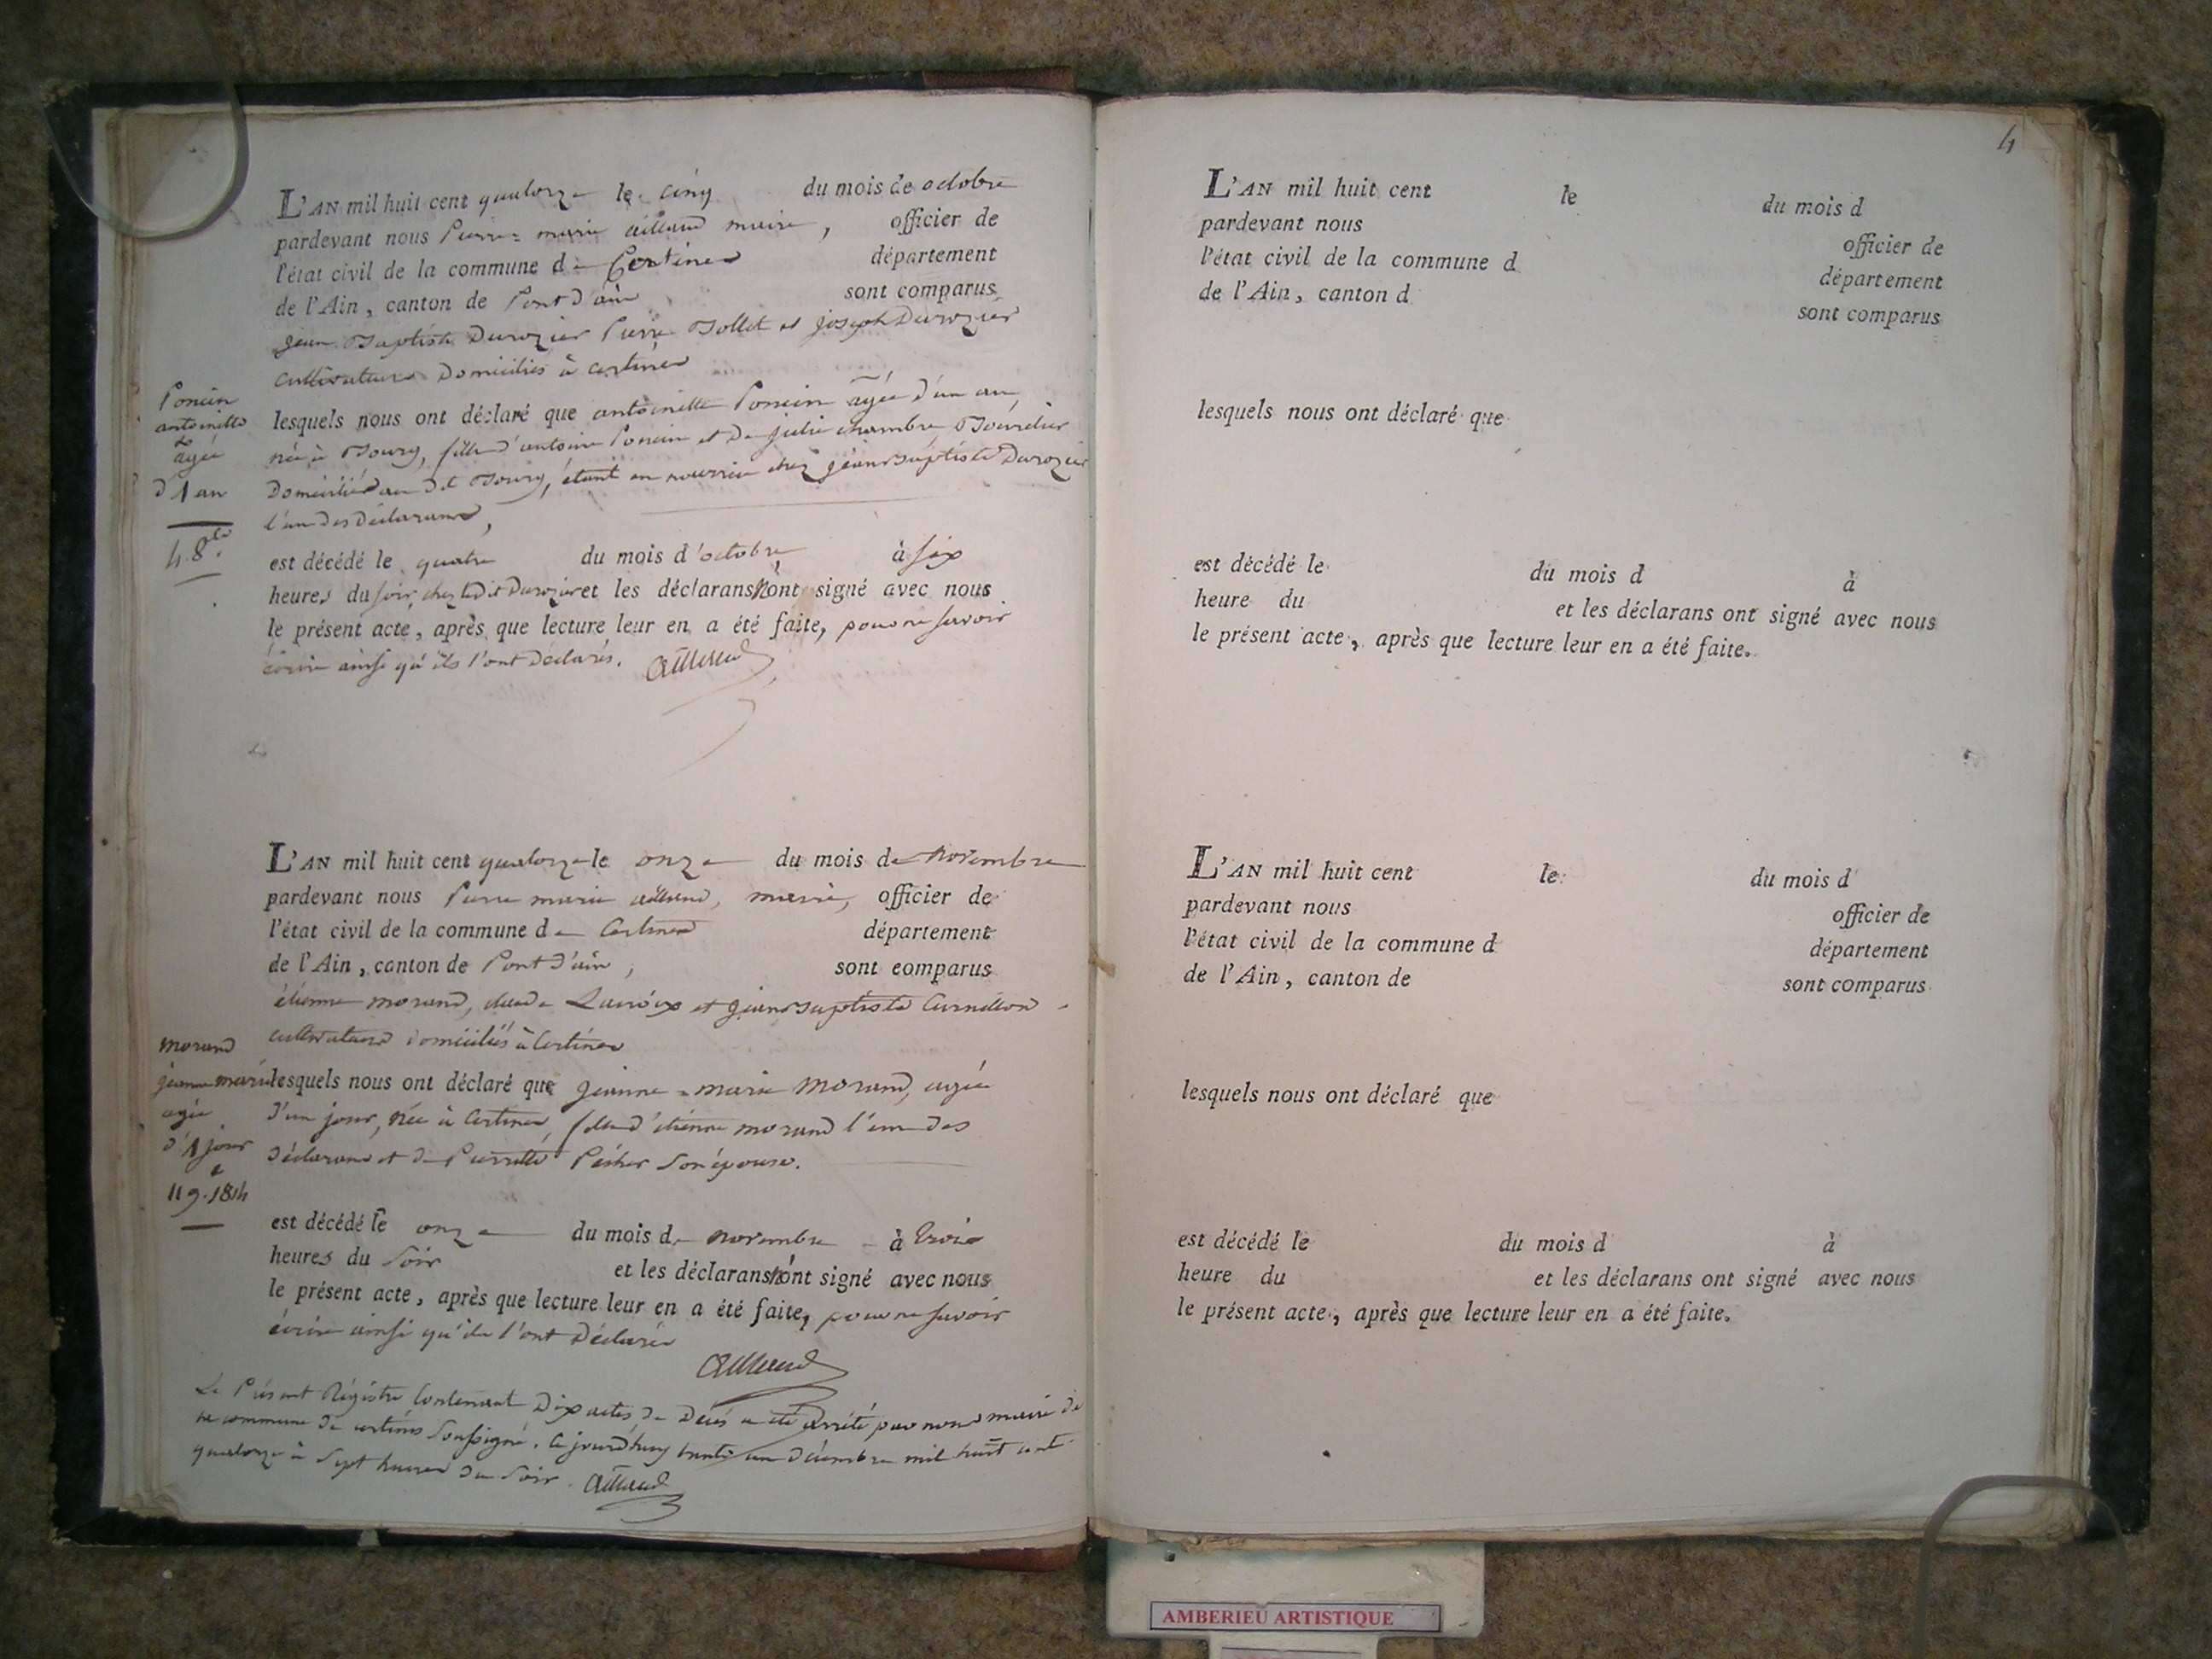 L'AN mil huit cent quatorze le cinq du mois de octobre
pardevant nous Pierre = marie aillaud maire, officier de
l'état civil de la commune de Certines département
de l'Ain, canton de Pont d'ain sont comparus
jean Baptiste Durozier Pierre Bollet et joseph Durozier
cultivateurs Domiciliés à certines
Poncin
antoinette
agée
d'1 an
48.bre
lesquels nous ont déclaré que antoinette Poncin âgée d'un an,
née à Bourg, fille d'antoine Poncin et De julie chambre Bourelier
Domiciliés au dit Bourg, étant en nourrice chez jean Baptiste Durozier
l'un des Déclarans,
est décédé le quatre du mois d'octobre, à six
heures du soir, chez le Dit Durozier et les déclarans n'ont signé avec nous
le présent acte, après que lecture leur en a été faite, pour ne savoir
écrire ainsi qu'ils l'ont Déclarés. aillaud
L'AN mil huit cent quatorze le onze du mois de novembre
pardevant nous Pierre marie aillaud, maire, officier de
l'état civil de la commune de Certines département
de l'Ain, canton de Pont d'ain, sont comparus
étienne morand, claude Lacroix et jean Baptiste Curnillon
cultivateurs domiciliés à Certines
morand
jeanne marie
agée
d'1 jour
11 9.e 1814
lesquels nous ont déclaré que jeanne = marie morand, agée
d'un jour, née à Certines, fille d'étienne morand l'un des
déclarans et de Pierrette son épouse.
est décédé le onze du mois de novembre à trois
heures du soir et les déclarans n'ont signé avec nous
le présent acte, après que lecture leur en a été faite, pour ne savoir
écrire ainsi qu'ils l'ont Déclarés
aillaud
Le Présent Régistre Contenant Dix actes de Décès a été arrêté par nous maire de
la commune de certines soussigné. Ce jourd'huy trente un décembre mil huit cent
quatorze à sept heures du soir. aillaud
4
L'AN mil huit cent le du mois d
pardevant nous officier de
l'état civil de la commune d département
de l'Ain, canton d sont comparus
lesquels nous ont déclaré que
est décédé le du mois d à
heure du et les déclarans ont signé avec nous
le présent acte, après que lecture leur en a été faite.
L'AN mil huit cent le du mois d
pardevant nous officier de
l'état civil de la commune d département
de l'Ain, canton de sont comparus
lesquels nous ont déclaré que
est décédé le du mois d à
heure du et les déclarans ont signé avec nous
le présent acte, après que lecture leur en a été faite.
AMBERIEU ARTISTIQUE